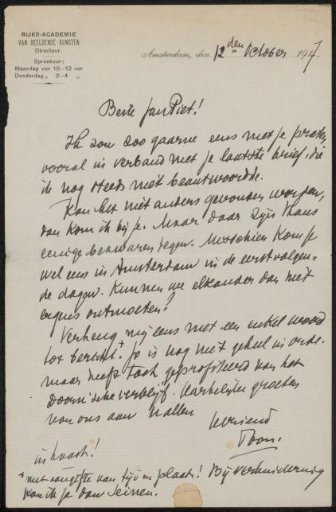 RIJKS-ACADEMIE
VAN BEELDENDE KUNSTEN
Directeur.
Spreekuur:
Maandag van 10–12 uur
Donderdag „ 2–4 „
Amsterdam, den 12den October 1927.
Beste Jan Piet!
Ik zou zoo gaarne eens met je praten
vooral in verband met je laatste brief, die
ik nog steeds niet beantwoordde.
Kan het niet anders gevonden worden,
dan kom ik bij je. Maar daar zijn thans
eenige bezwaren tegen. Misschien kom je
wel eens in Amsterdam in de eerstvolgen-
de dagen. Kunnen we elkander dan niet
ergens ontmoeten?
Verheug mij eens met een enkel woord
tot bericht.+ Jo is nog niet geheel in orde.
maar heeft toch geprofiteerd van het
Doornsche verblijf. Hartelijke groeten
van ons aan allen
vriend
Toon.
in haast!
+ met opgifte van tijd en plaats! Bij verhindering
kan ik je dan seinen.